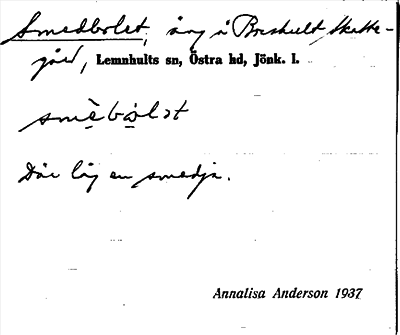 Smedbolet, äng å Boshult Skatte-
gård, Lemnhults sn, Östra hd, Jönk. l.
smèbòlət
Där låg en smedja.
Annalisa Anderson 1937